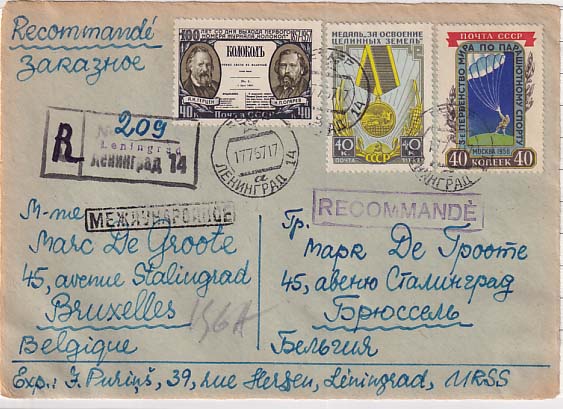 Recommandé
Заказное
100 ЛЕТ СО ДНЯ ВЫХОДА ПЕРВОГО
НОМЕРА ЖУРНАЛА „КОЛОКОЛ“ 1857-1957
КОЛОКОЛЪ
А.И.ГЕРЦЕН
Н.П.ОГАРЕВ
40 К ПОЧТА СССР 40
МЕДАЛЬ „ЗА ОСВОЕНИЕ
ЦЕЛИННЫХ ЗЕМЕЛЬ“
40 К ПОЧТА СССР
ПОЧТА СССР
ПЕРВЕНСТВО МИРА ПО ПАРАШЮТНОМУ СПОРТУ
МОСКВА 1956
40 КОПЕЕК 40
R
№ 209
Leningrad
ЛЕНИНГРАД 14
17 7 57 17
ЛЕНИНГРАД 14
МЕЖДУНАРОДНОЕ
RECOMMANDÉ
M-me
Marc De Groote
45, avenue Stalingrad
Bruxelles
Belgique
Гр.
Марк Де Гроотe
45, авеню Сталинград
Брюссель
Бельгия
196A
Exp.: J. Puriņš, 39, rue Herzen, Léningrad, URSS